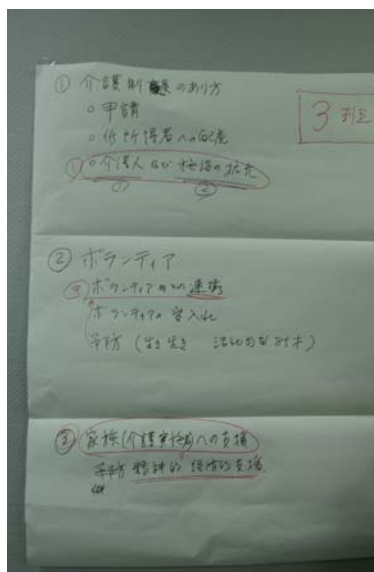 ① 介護制度のあり方
3班
○申請
○低所得者への配慮
① ○介護人及び施設の拡充
① ②
② ボランティア
ボランティアとの連携
ボランティアの受入れ
予防 (生き生き 活動的な
③ 家族(介護家族)への支援
精神的 経済的支援